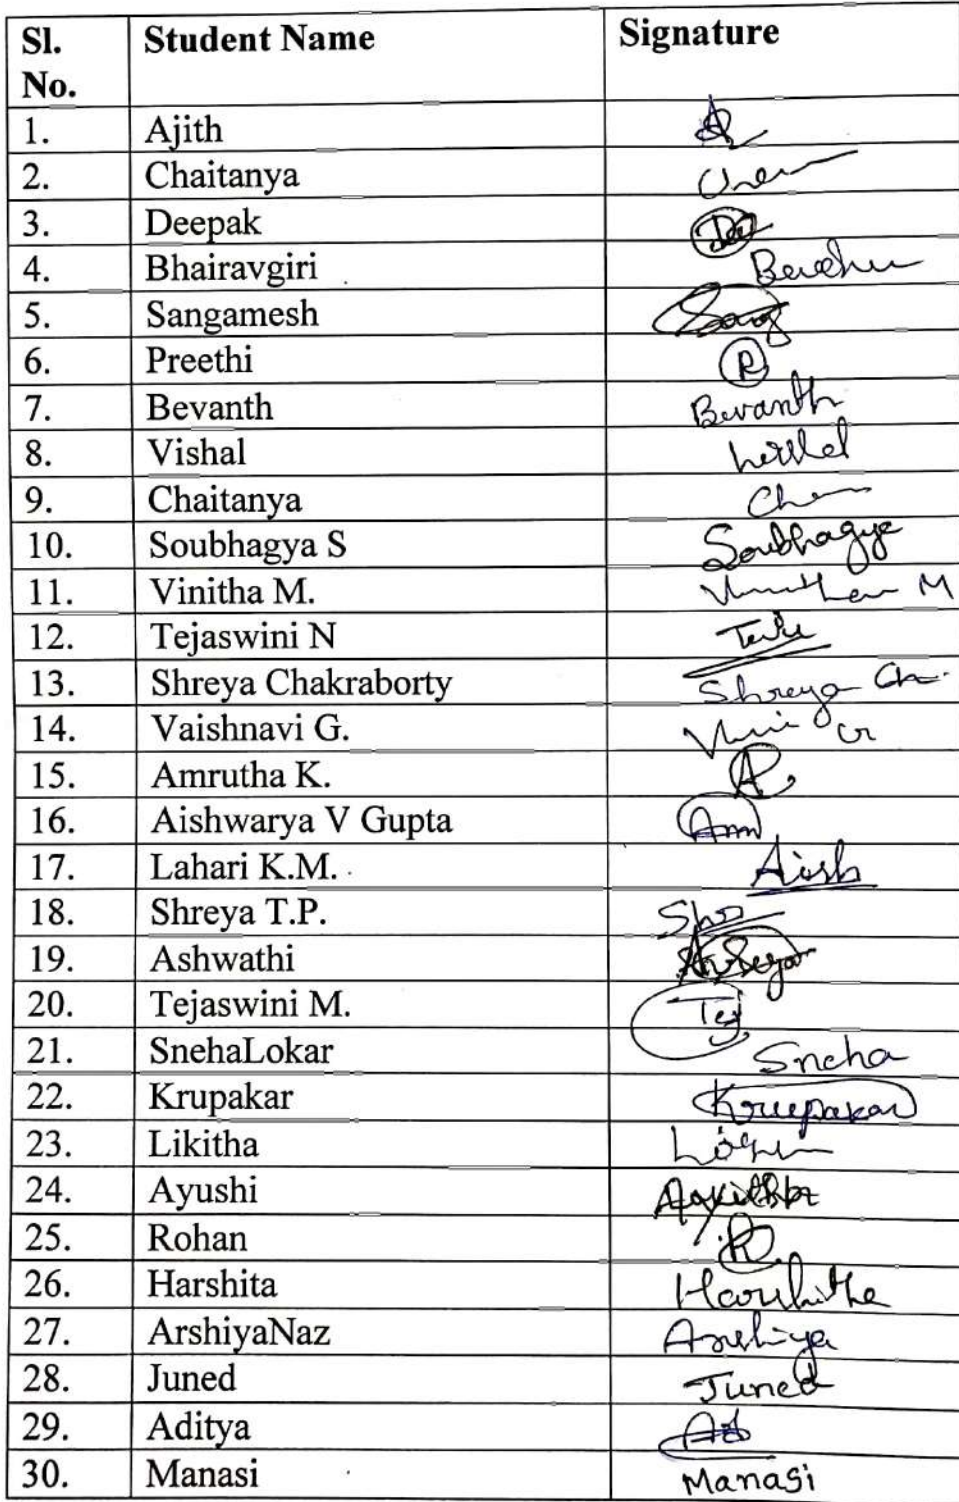 Sl. Student Name Signature
No.
1. Ajith
2. Chaitanya
3. Deepak
4. Bhairavgiri
5. Sangamesh
6. Preethi
7. Bevanth Bevanth
8. Vishal
9. Chaitanya
10. Soubhagya S Soubhagya
11. Vinitha M. M
12. Tejaswini N
13. Shreya Chakraborty Shreya Ch.
14. Vaishnavi G.
15. Amrutha K. A
16. Aishwarya V Gupta
17. Lahari K.M. Aish
18. Shreya T.P.
19. Ashwathi
20. Tejaswini M. Tej
21. SnehaLokar Sneha
22. Krupakar Krupakar
23. Likitha
24. Ayushi
25. Rohan R
26. Harshita Harshitha
27. ArshiyaNaz Arshiya
28. Juned Juned
29. Aditya
30. Manasi Manasi